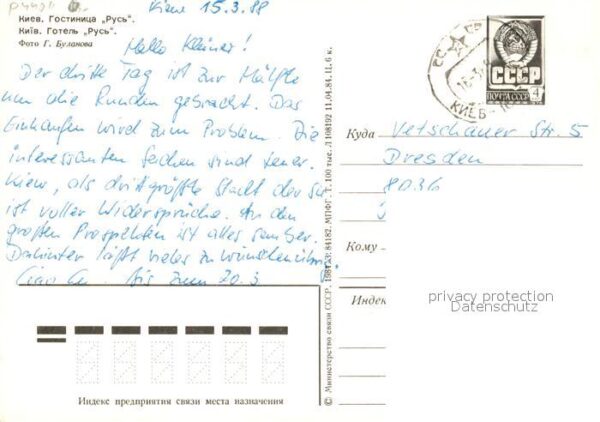 Киев. Гостиница „Русь".
Київ. Готель „Русь".
Фото Г. Буланова
Kiew 15.3.88
Hallo Kleiner!
Der dritte Tag ist zur Hälfte
um die Runden gebracht. Das
Einkaufen wird zum Problem. Die
interessanten Sachen sind teuer.
Kiew, als drittgrößte Stadt der SU
ist voller Widersprüche. An den
großen Prospekten ist alles sauber.
Dahinter läßt vieles zu wünschen übrig.
Ciao
Bis zum 20.3.
© Министерство связи СССР. 1984. З. 84182. МПФГ. Т. 100 тыс. Л 108192 11.04.84. Ц. 6 к.
СССР
ПОЧТА СССР
4
КИЕВ
Куда Vetschauer Str. 5
Dresden
8036
Кому
Индекс
privacy protection
Datenschutz
Индекс предприятия связи места назначения